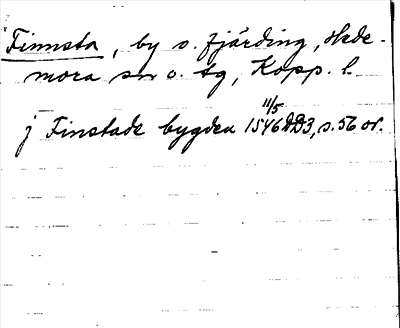 Finnsta, by o. fjärding, Hede-
mora sn o. tg, Kopp. l.
11/5
j Finstade bygden 1546 DD3, s. 56 or.